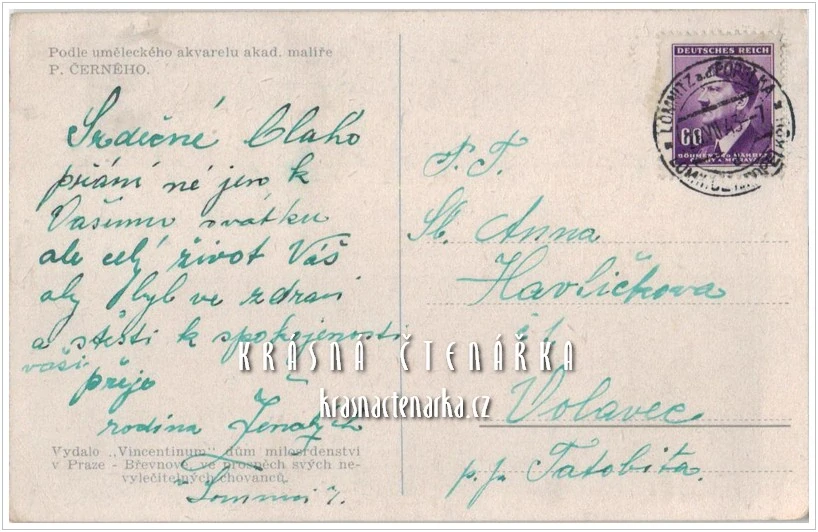 Podle uměleckého akvarelu akad. malíře
P. ČERNÉHO.
Srdečné blaho
přání né jen k
Vašemu svátku
ale celý život Váš
aby byl ve zdraví
a stěstí k spokojenosti
vaši
přeje
rodina
Vydalo „Vincentinum" dům milosrdenství
v Praze - Břevnově, ve prospěch svých ne-
vyléčitelných chovanců.
DEUTSCHES REICH
60
BÖHMEN UND MÄHREN
LOMNITZ a.d. POPELKA
P. T.
Sl. Anna
Havlíčkova
Volavec
p. p. Tatobita.
KRÁSNÁ ČTENÁŘKA
krasnactenarka.cz